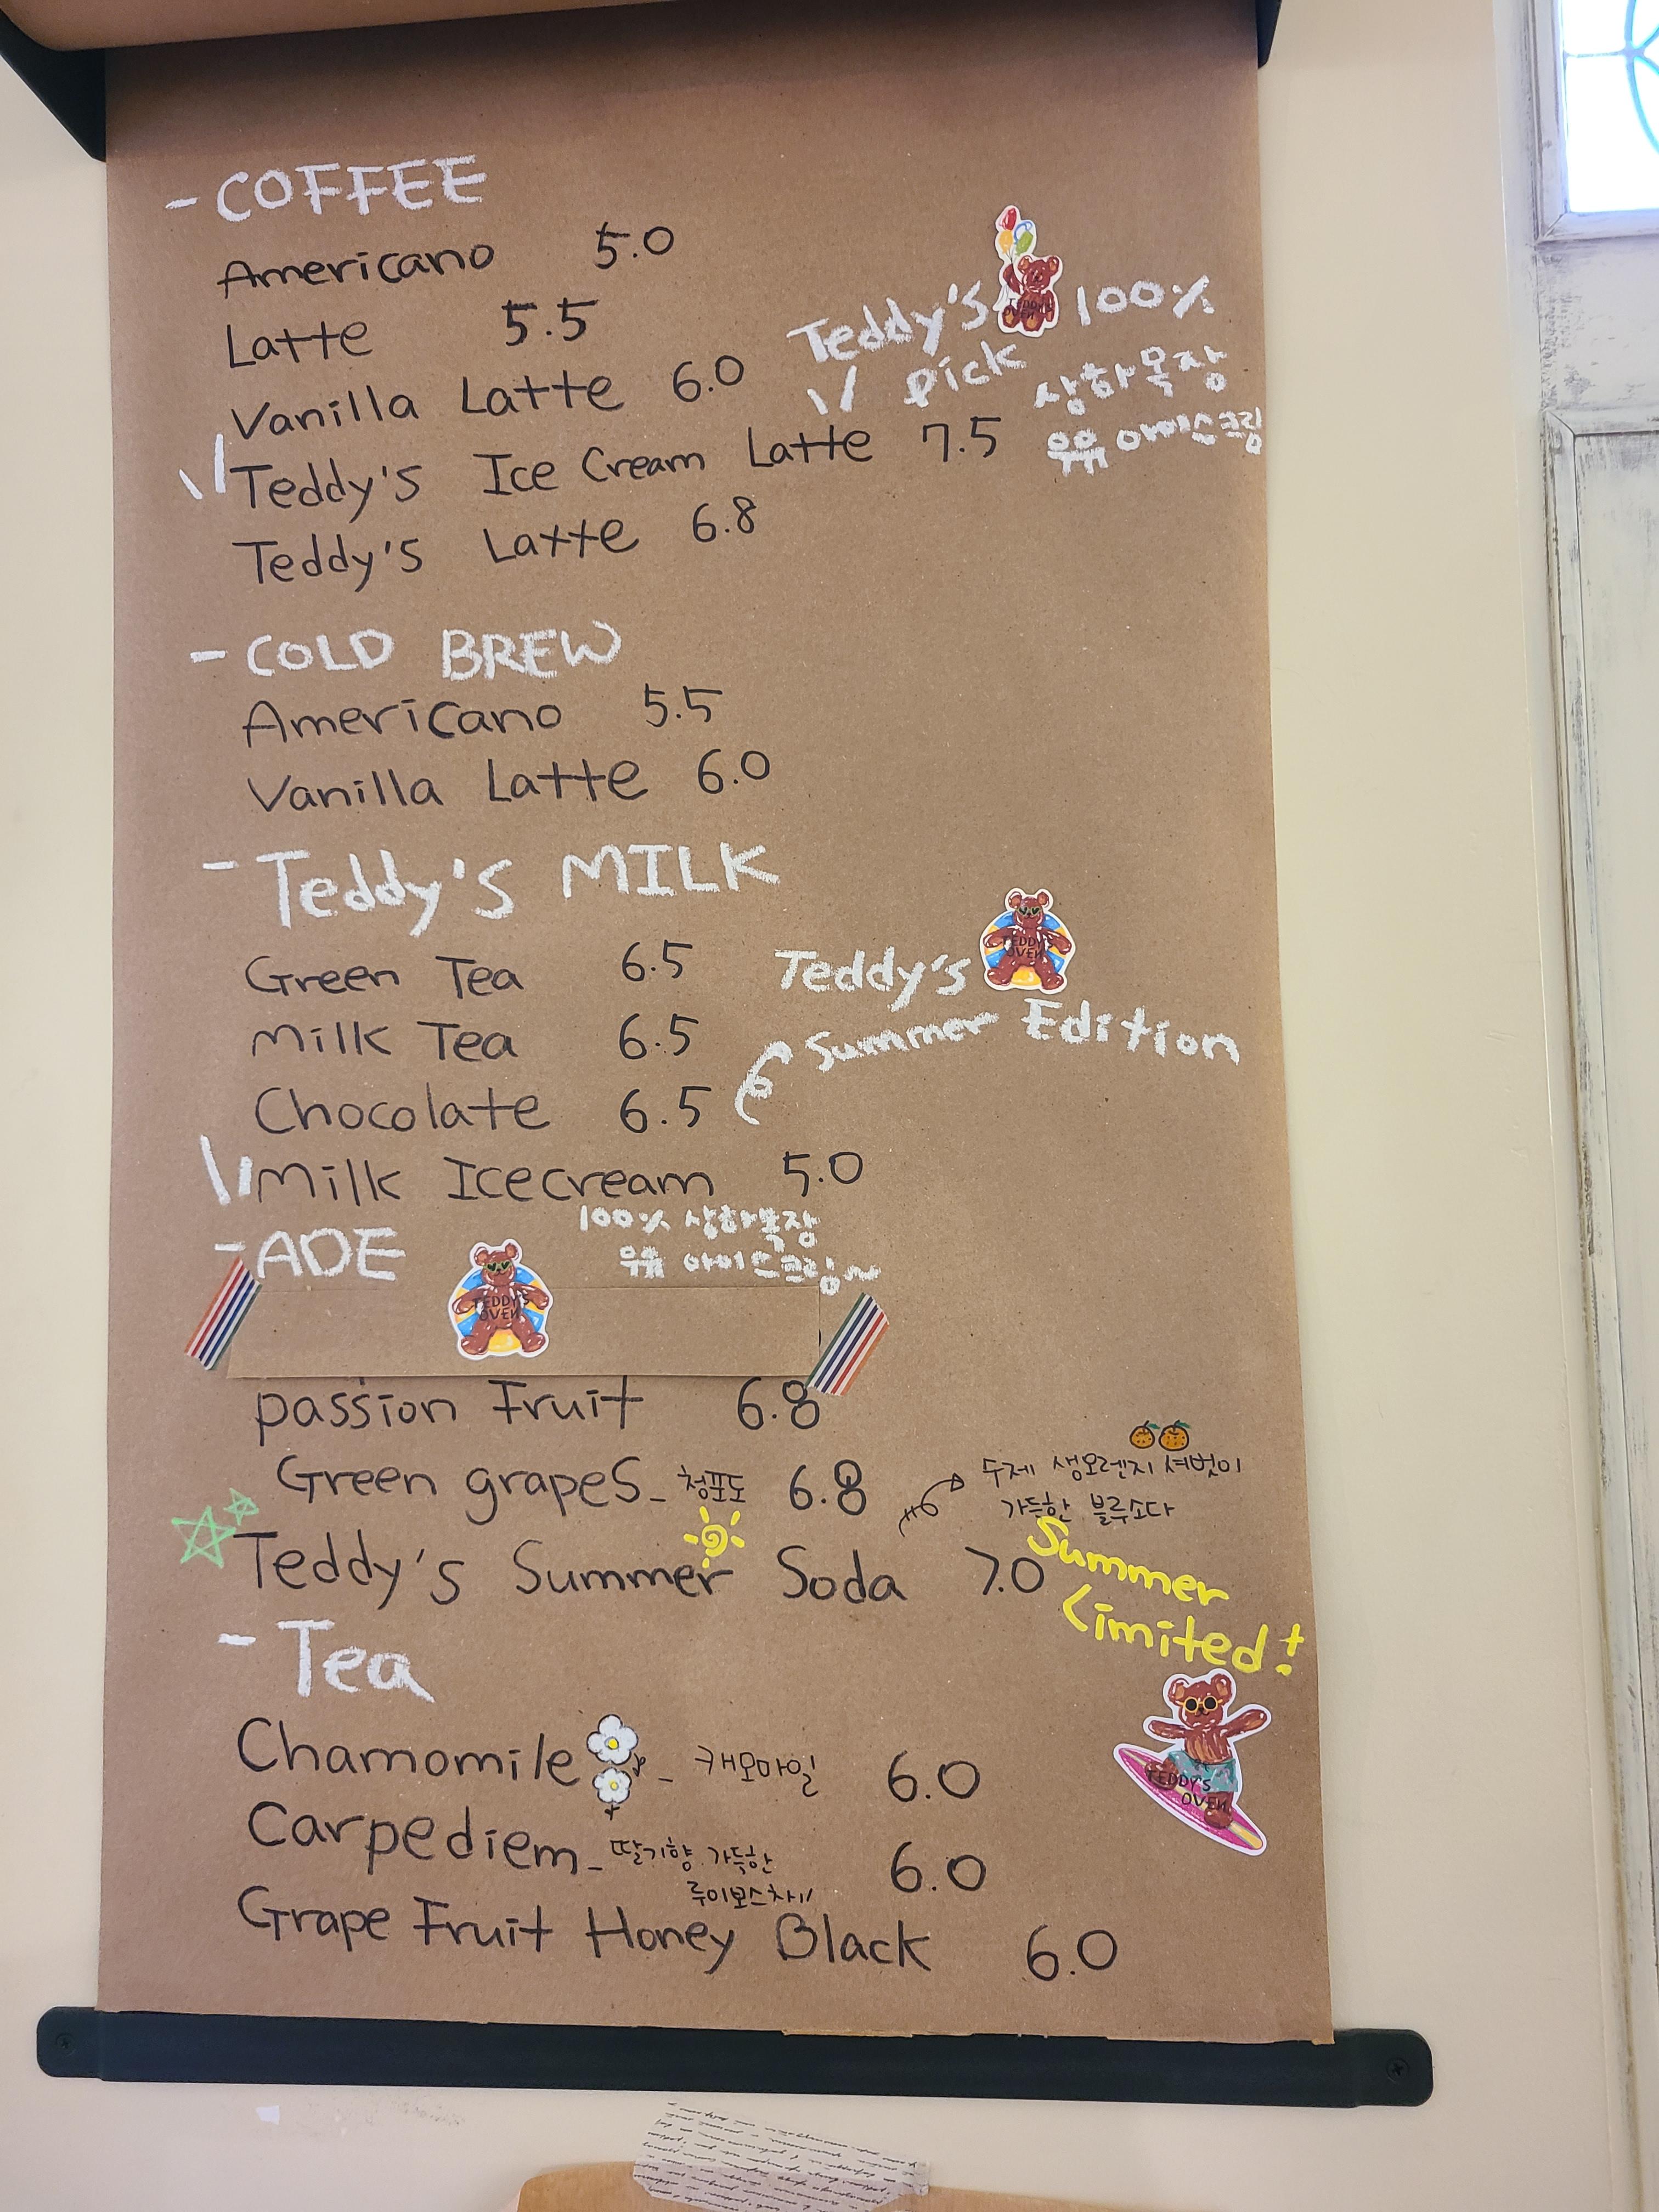 - COFFEE
Americano 5.0
Latte 5.5
Vanilla Latte 6.0
Teddy's 100%
pick 상하목장
우유 아이스크림
Teddy's Ice Cream Latte 7.5
Teddy's Latte 6.8
- COLD BREW
Americano 5.5
Vanilla Latte 6.0
- Teddy's MILK
Green Tea 6.5
Milk Tea 6.5
Chocolate 6.5
Teddy's
Summer Edition
TEDDY'S
OVEN
Milk Icecream 5.0
100% 상하목장
우유 아이스크림~
- ADE
TEDDY'S
OVEN
passion Fruit 6.8
Green grapes_ 청포도 6.8
수제 생오렌지 셔벗이
가득한 블루소다
Teddy's Summer Soda 7.0
Summer
Limited!
- Tea
Chamomile _ 캐모마일 6.0
Carpediem_ 딸기향 가득한 6.0
루이보스차!!
Grape Fruit Honey Black 6.0
TEDDY'S
OVEN